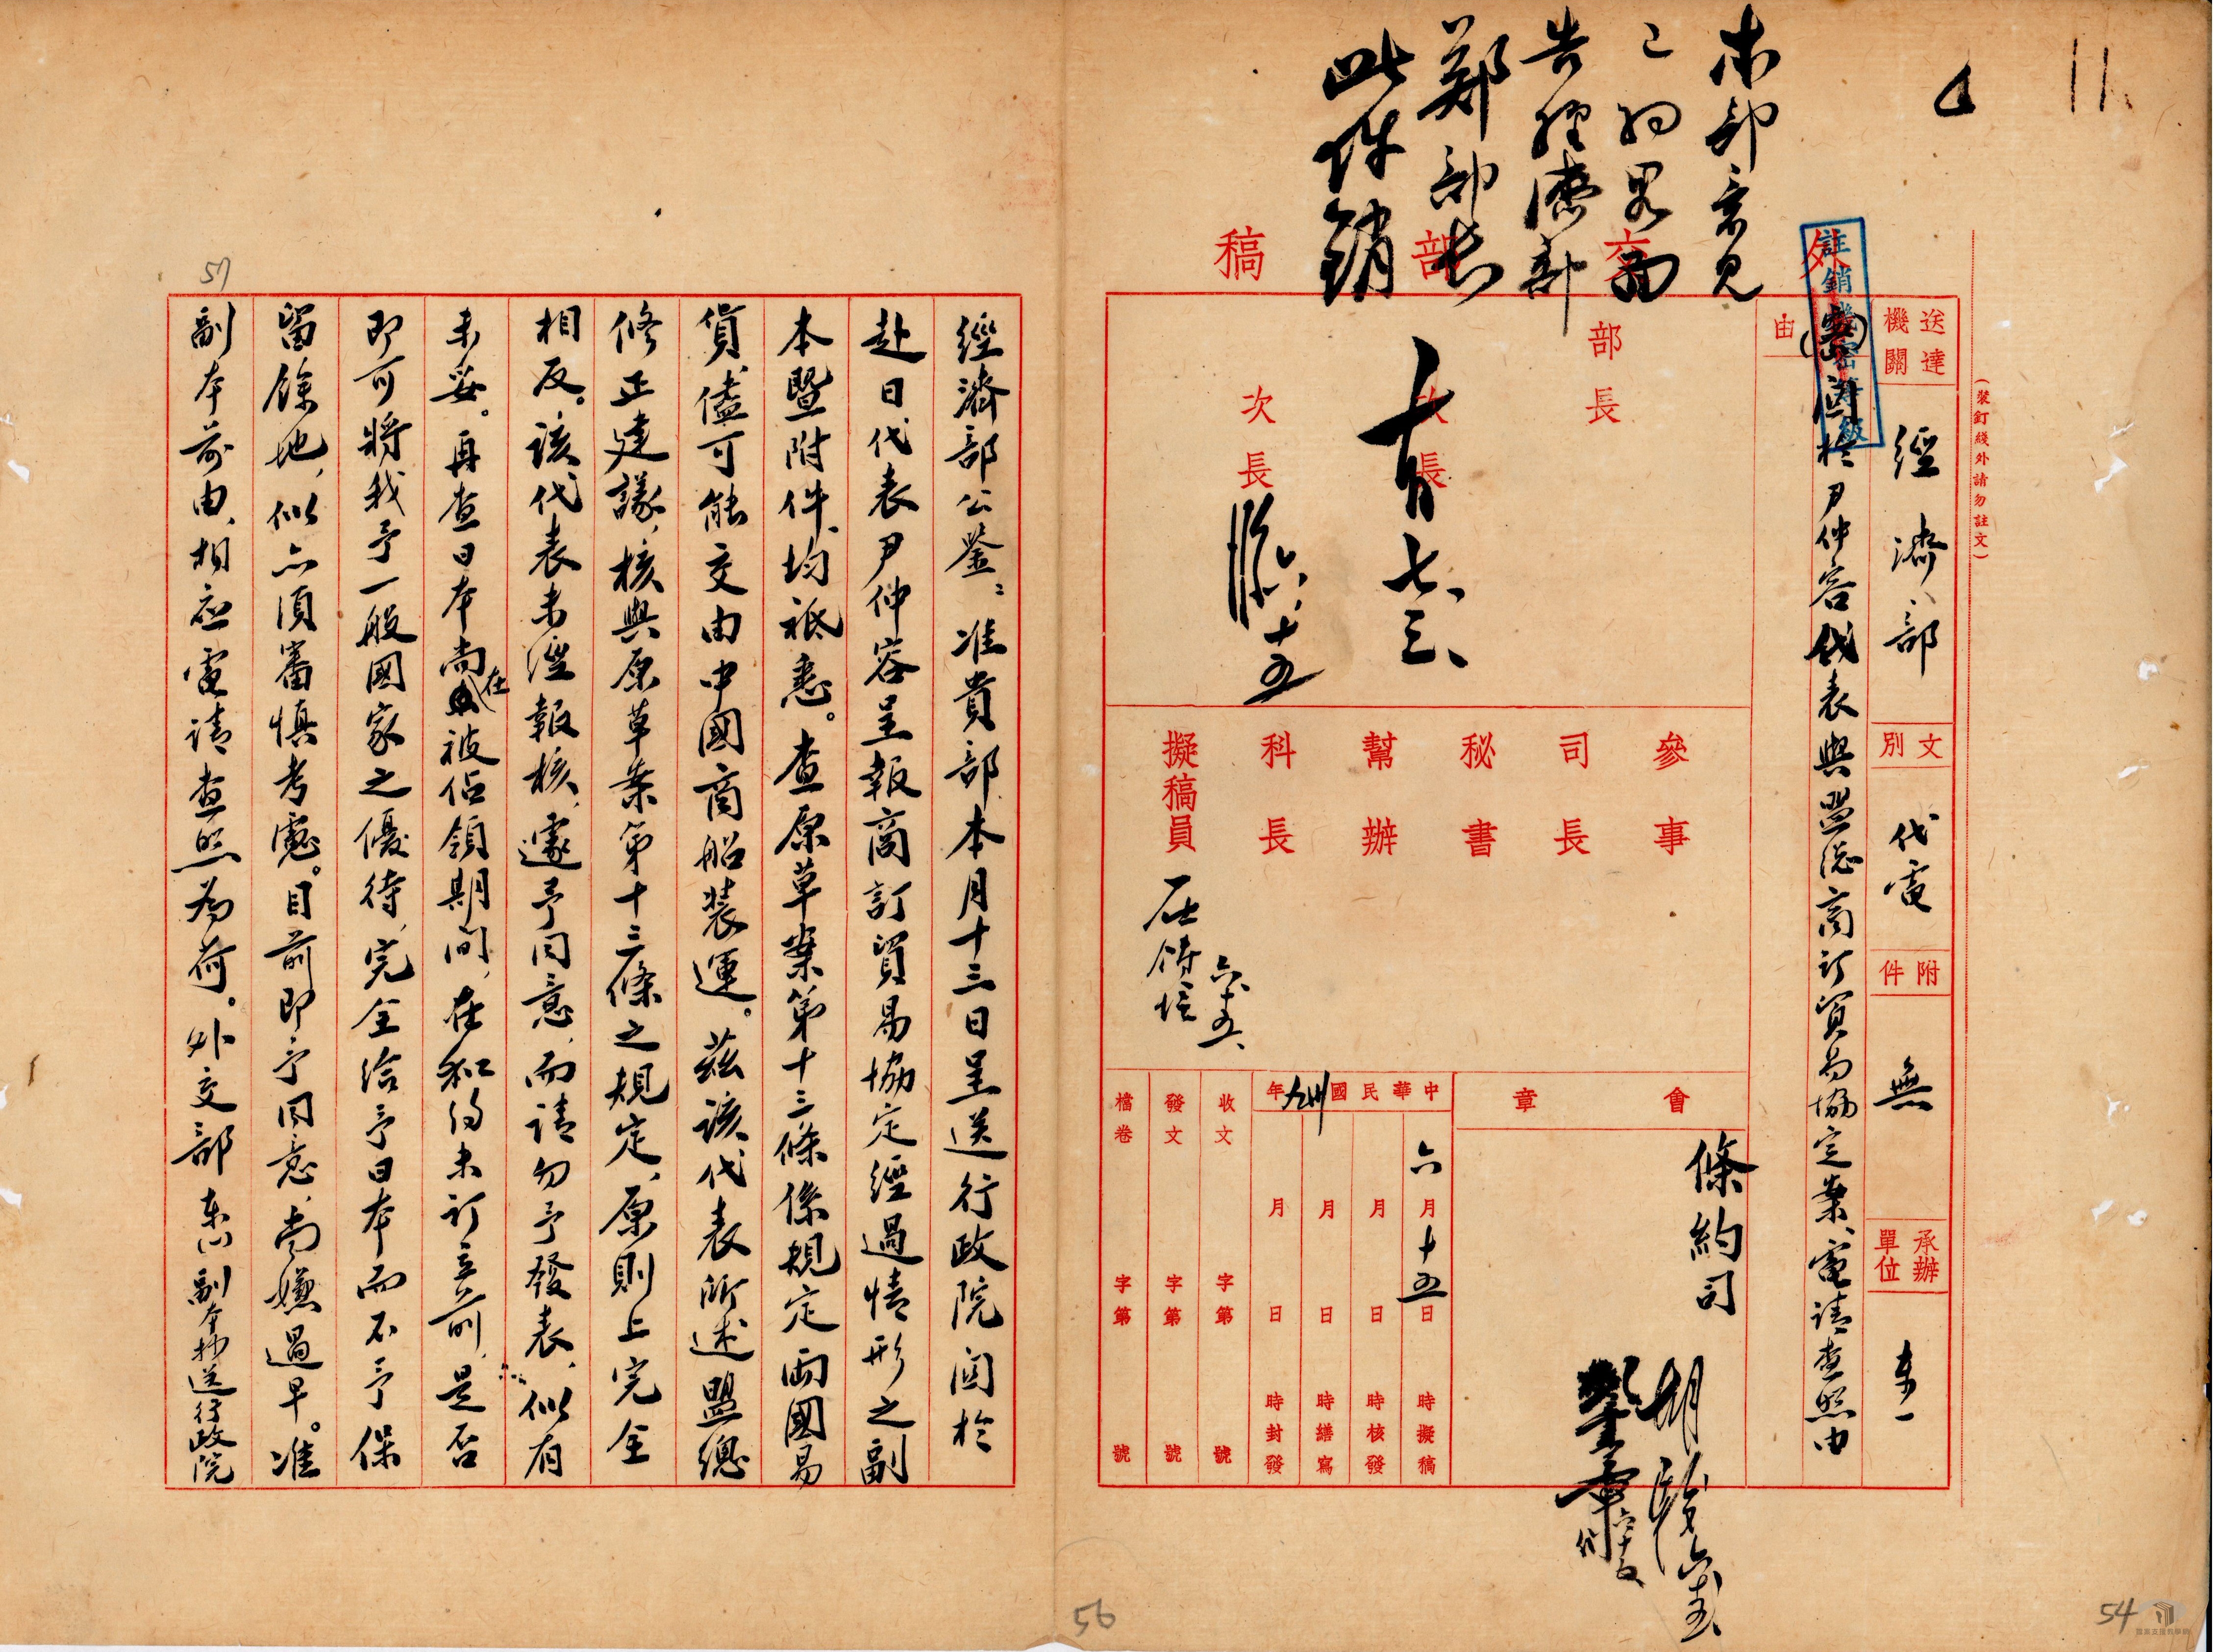 11
本部意見
已句略面
告經濟部
鄭部長
此件銷
外交部稿
註銷機密等級
(裝釘綫外請勿註文)
送達機關 經濟部
文別 代電
附件 無
承辦單位 東一
由
關於尹仲容代表與盟總商訂貿易協定案、電請查照由
部長
次長
次長
七、三、
六、十五
參事
司長
秘書
幫辦
科長
擬稿員
六、十五、
會章
條約司
胡
中華民國卅九年
六月十五日 時擬稿
月 日 時核發
月 日 時繕寫
月 日 時封發
收文 字第 號
發文 字第 號
檔卷 字第 號
經濟部公鑒：准貴部本月十三日呈送行政院関於
赴日代表尹仲容呈報商訂貿易協定經過情形之副
本暨附件、均祗悉。查原草案第十三條係規定両國易
貨儘可能交由中國商船裝運。茲該代表所述盟總
修正建議、核與原草案第十三條之規定、原則上完全
相反。該代表未經報核、遽予同意、而請勿予發表、似有
未妥。再查日本尚在被佔領期間、在和約未訂立前、是否
即可將我予一般國家之優待、完全給予日本而不予保
留餘地、似亦須審慎考慮。目前即予同意、尚嫌過早。准
副本前由、相應電請查照為荷。外交部 東(一) 副本抄送行政院
57
56
54